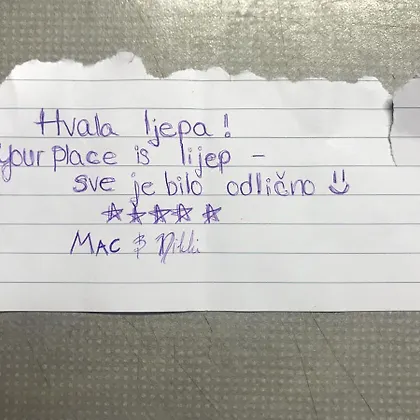 Hvala ljepa!
Your place is lijep -
sve je bilo odlično
MAC & Nikki